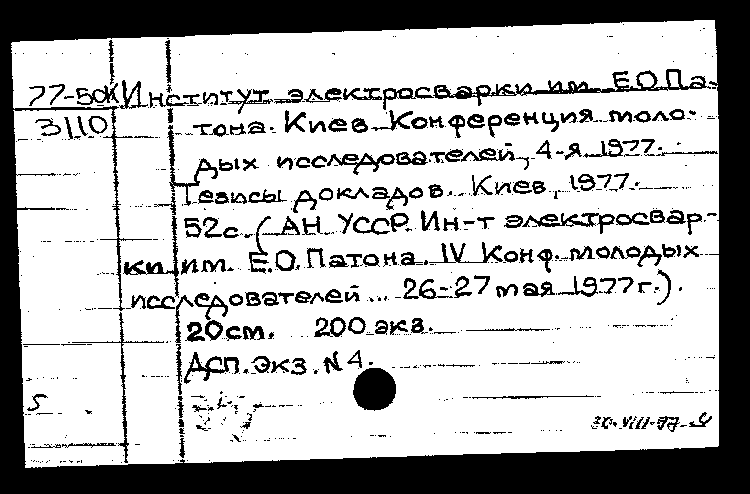 77-50К Институт электросварки им. Е.О.Па-
3110 тона. Киев. Конференция моло-
дых исследователей, 4-я. 1977.
Тезисы докладов. Киев, 1977.
52с. (АН УССР. Ин-т электросвар-
ки им. Е.О.Патона. IV Конф. молодых
исследователей... 26-27 мая 1977г.).
20см. 200 экз.
ДСП. Экз. N 4.
5